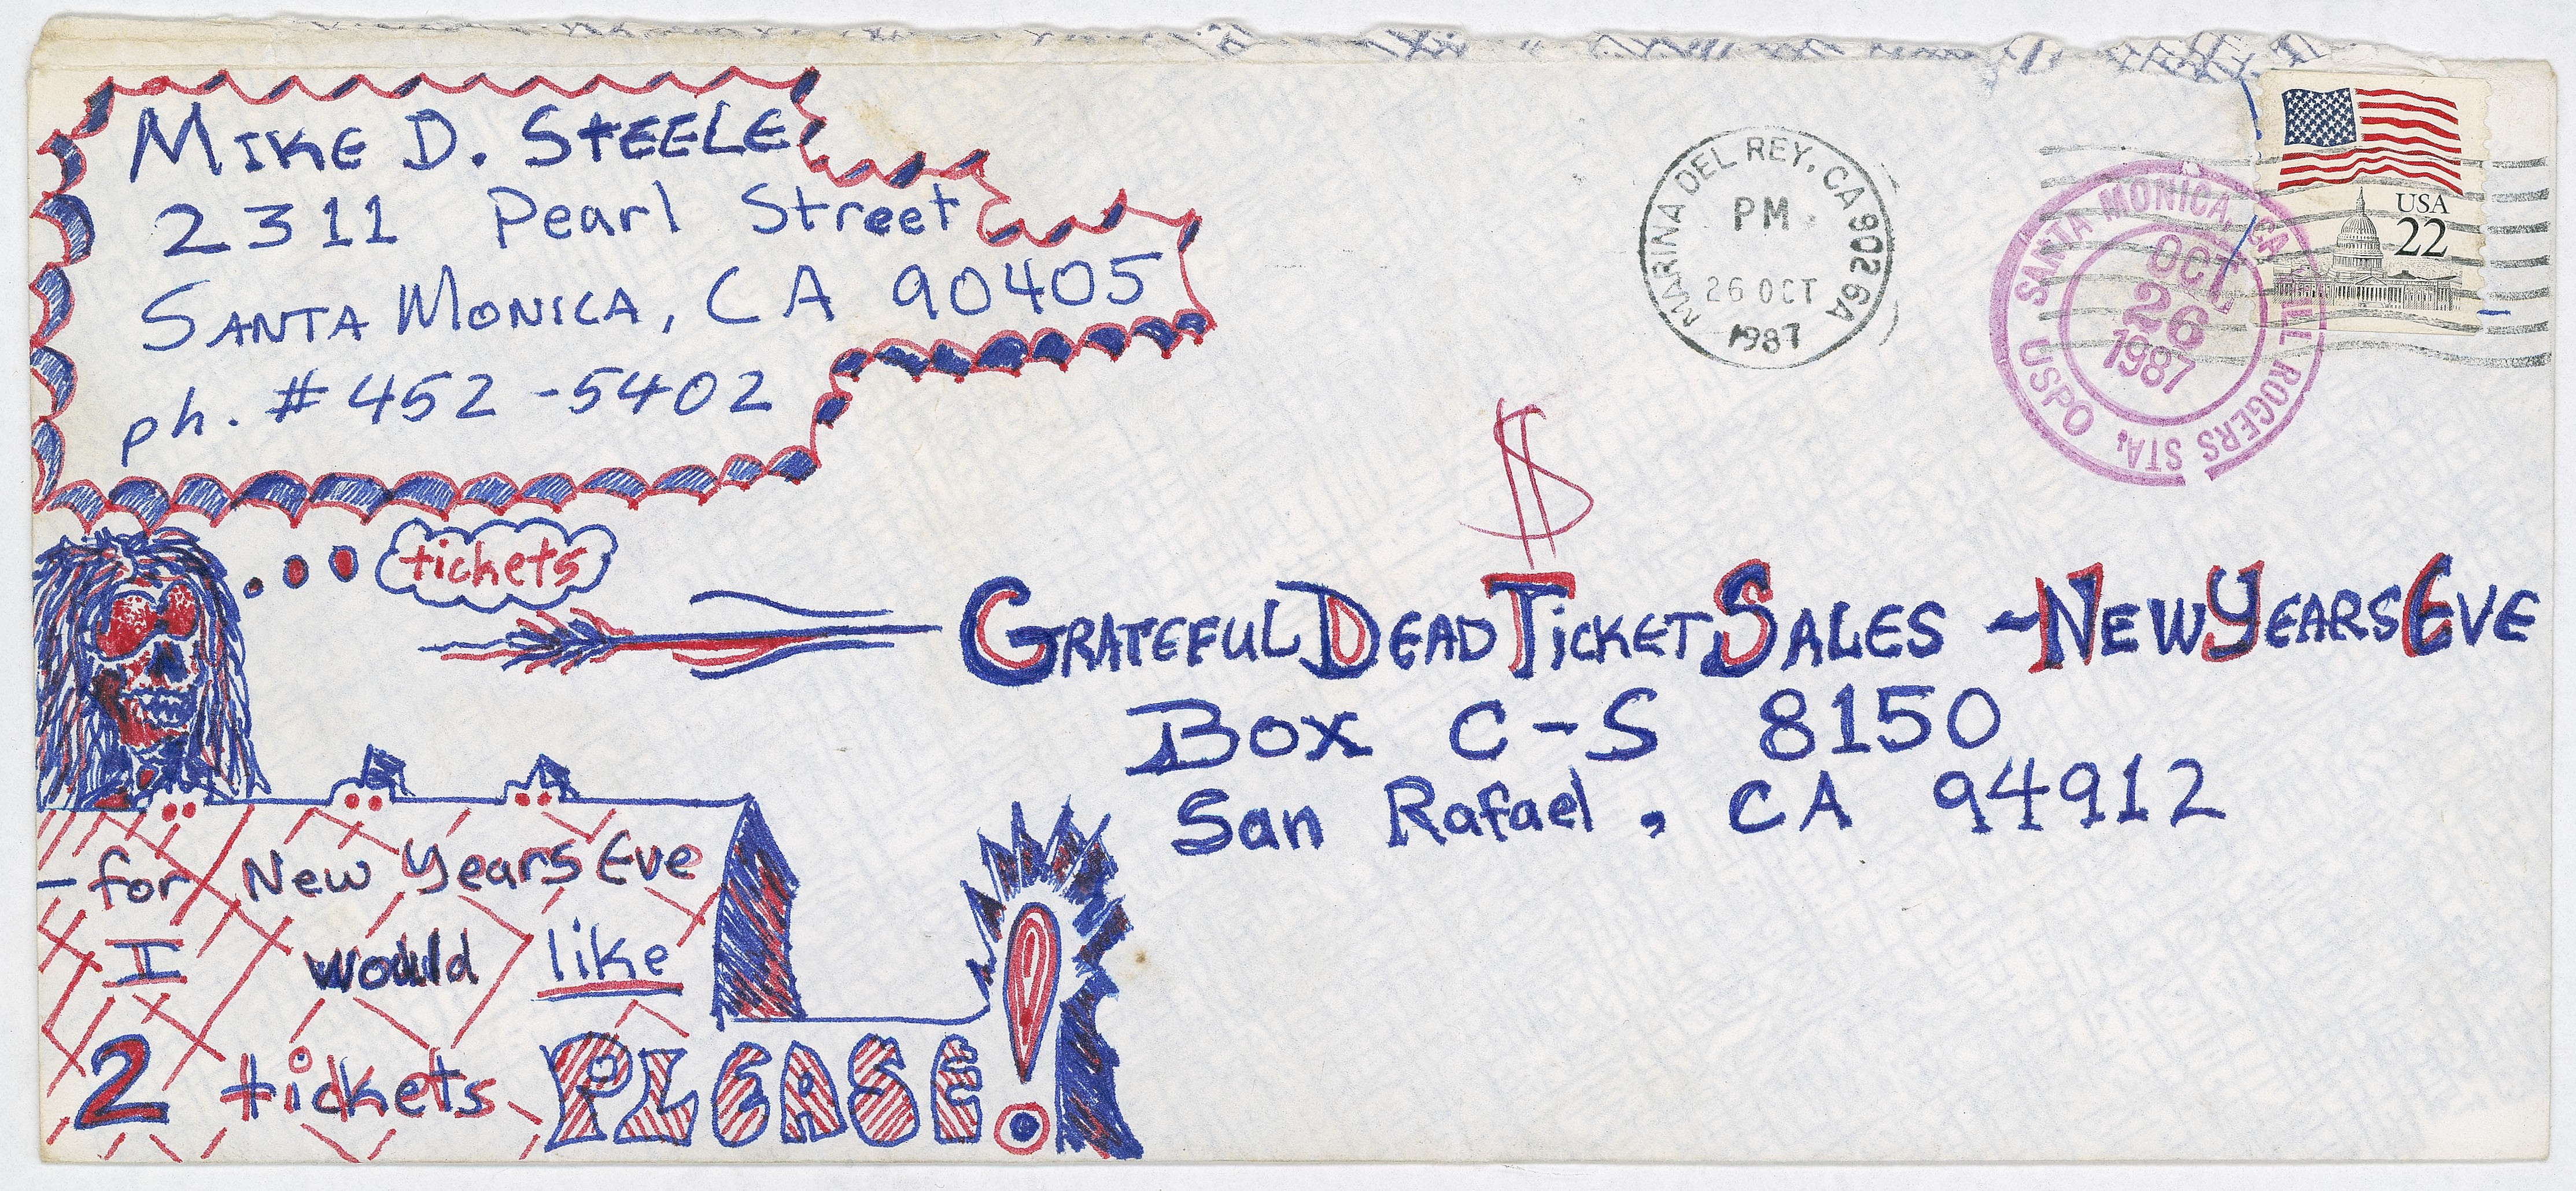 MIKE D. STEELE
2311 Pearl Street
SANTA MONICA, CA 90405
ph. # 452-5402
MARINA DEL REY, CA 902 6A
PM
26 OCT
1987
SANTA MONICA, CA WILL ROGERS STA. USPO
OCT
26
1987
USA
22
$
tickets
GRATEFUL DEAD TICKET SALES - NEW YEARS EVE
BOX C-S 8150
San Rafael, CA 94912
- for New Years Eve
I would like
2 tickets PLEASE!